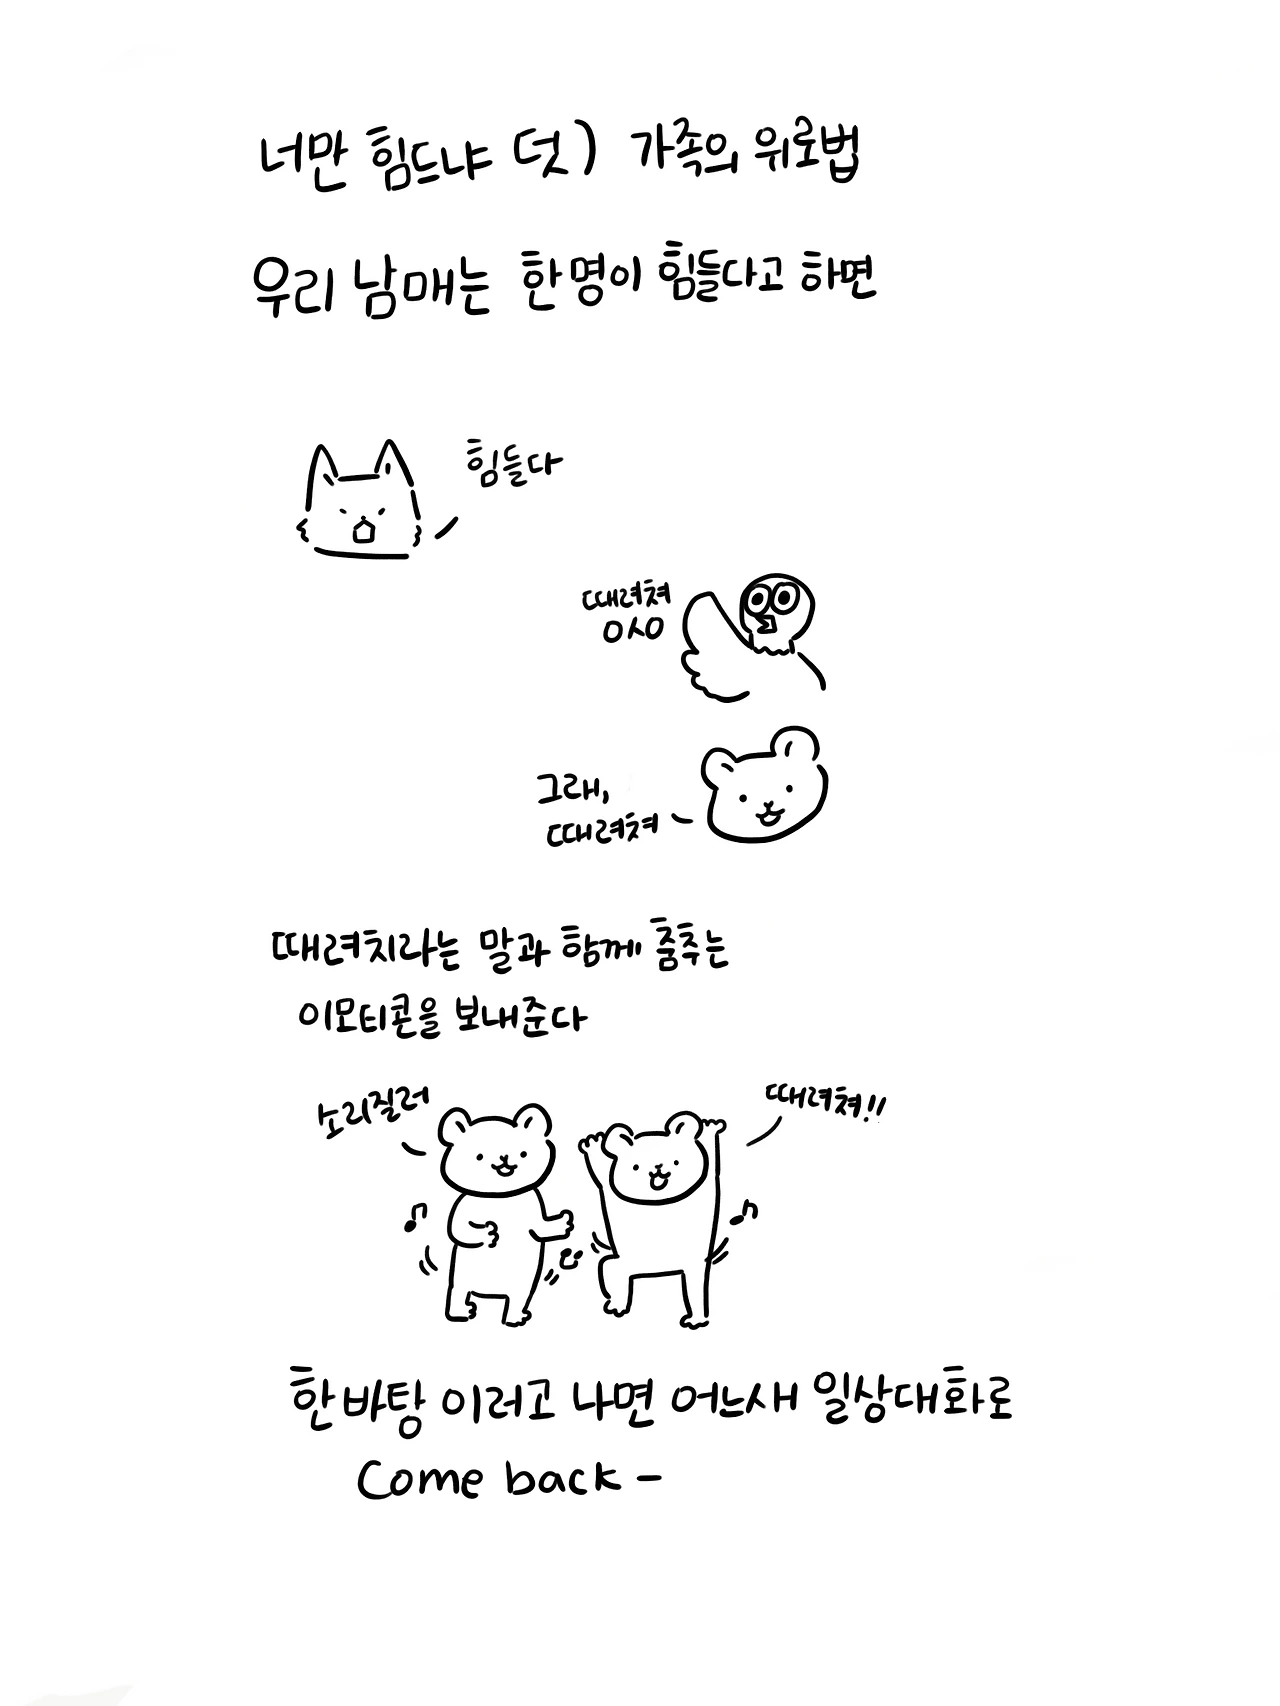 너만 힘드냐 덧) 가족의 위로법
우리 남매는 한명이 힘들다고 하면
힘들다
때려쳐
ㅇㅅㅇ
그래,
때려쳐
때려치라는 말과 함께 춤추는
이모티콘을 보내준다
소리질러
때려쳐!!
한바탕 이러고 나면 어느새 일상대화로
Come back -